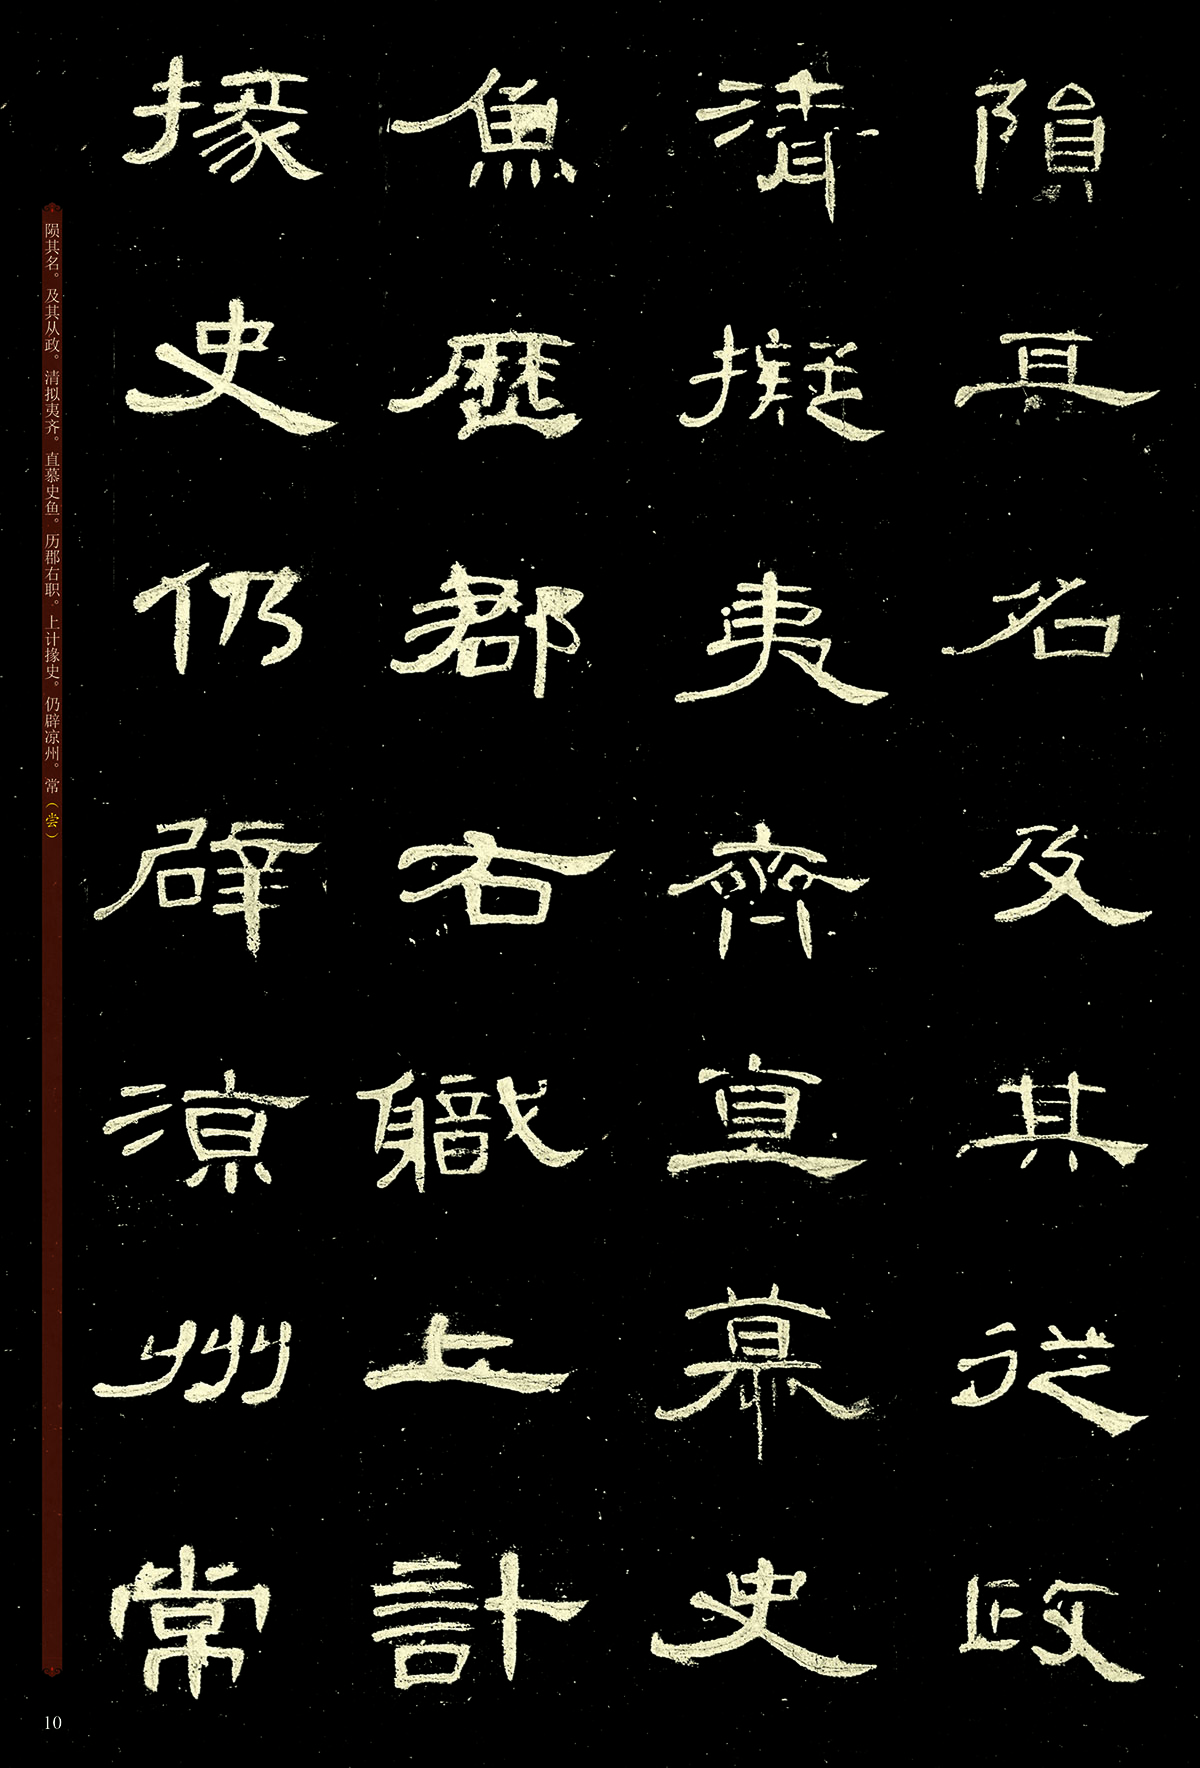 隕其名及其從政
清擬夷齊直慕史
魚歷郡右職上計
掾史仍辟涼州常
陨其名。及其从政。清拟夷齐。直慕史鱼。历郡右职。上计掾史。仍辟凉州。常（尝）
10